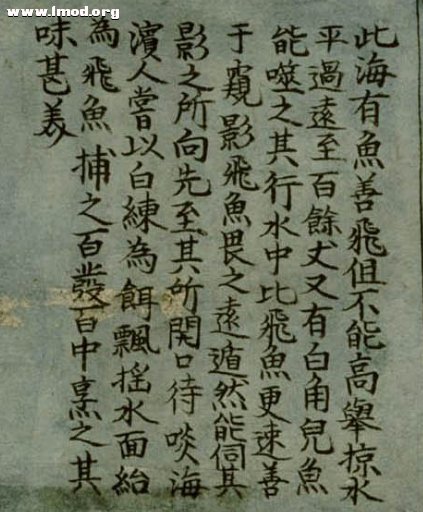 www.lmod.org
此海有魚善飛但不能高舉掠水
平過遠至百餘丈又有白角兒魚
能噬之其行水中比飛魚更速善
于窺影飛魚畏之遠遁然能伺其
影之所向先至其所開口待啖海
濱人嘗以白練為餌飄搖水面紿
為飛魚捕之百發百中烹之其
味甚美